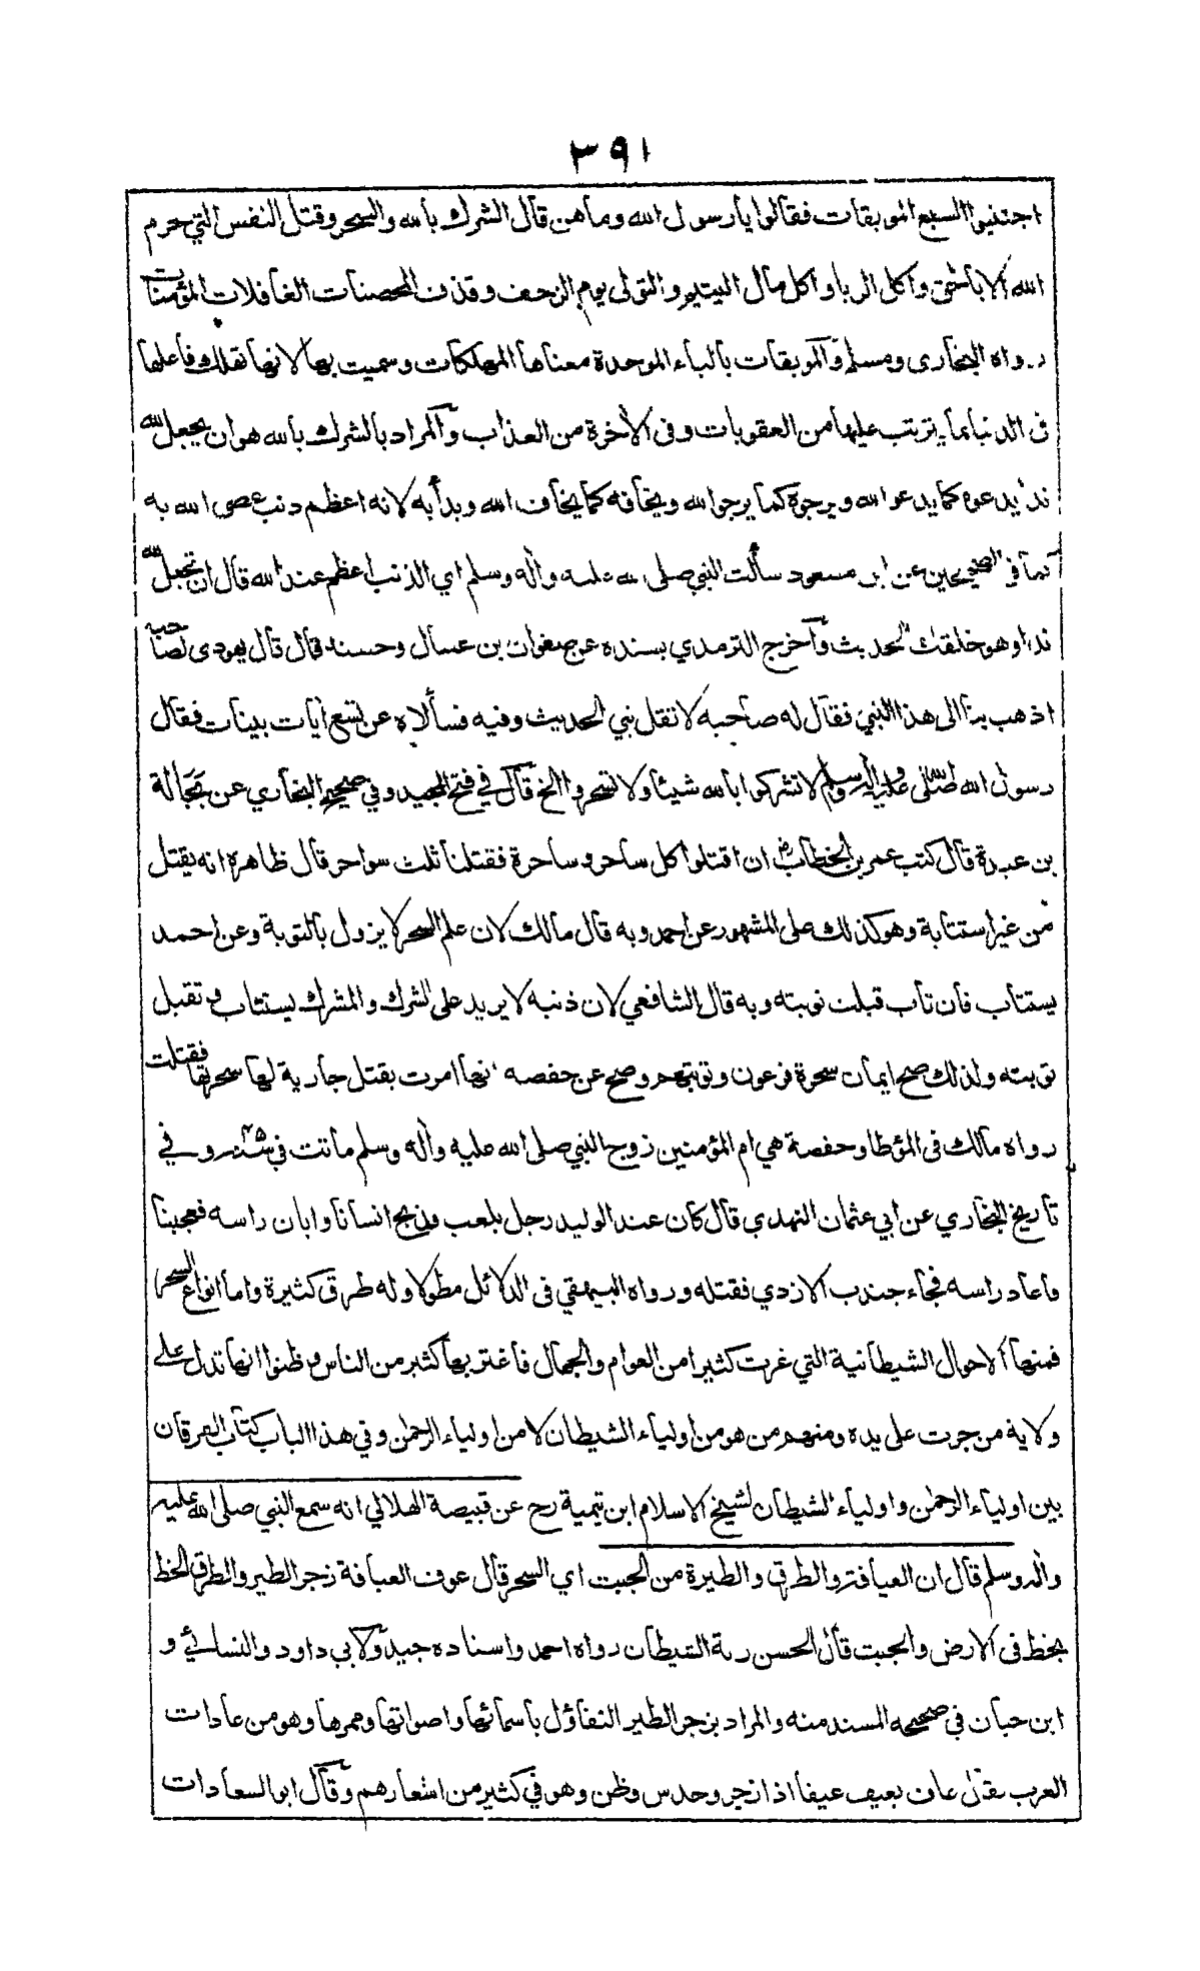 ٣٩١
اجتنبوا السبع الموبقات فقالوا يا رسول الله وما هن قال الشرك بالله والسحر وقتل النفس التي حرم
الله الا بالحق واكل الربا واكل مال اليتيم والتولى يوم الزحف وقذف المحصنات الغافلات المؤمنات
رواه البخارى ومسلم والموبقات بالباء الموحدة معناها المهلكات وسميت بها لانها تهلك فاعلها
فى الدنيا بما يترتب عليها من العقوبات وفى الاخرة من العذاب والمراد بالشرك بالله هو ان يجعل لله
ندا يدعوه كما يدعو الله ويرجوه كما يرجو الله ويخافه كما يخاف الله وبدأ به لانه اعظم ذنب عصى الله به
كما في الصحيحين عن ابن مسعود سألت النبي صلى الله عليه واله وسلم اي الذنب اعظم عند الله قال ان تجعل لله
ندا وهو خلقك الحديث وآخرج الترمدي بسنده عن صفوان بن عسال وحسنه قال قال يهودى لصاحبه
اذهب بنا الى هذا النبي فقال له صاحبه لا تقل نبي الحديث وفيه فسألاه عن تسع ايات بينات فقال
رسول الله صلى الله عليه واله وسلم لا تشركوا بالله شيئا ولا تسحروا الخ قال في فتح المجيد وفي صحيح البخاري عن بجالة
بن عبدة قال كتب عمر بن الخطاب رض ان اقتلوا كل ساحر وساحرة فقتلنا ثلث سواحر قال ظاهره انه يقتل
من غير استتابة وهو كذلك على المشهور عن احمد وبه قال مالك لان علم السحر لا يزول بالتوبة وعن احمد
يستتاب فان تاب قبلت توبته وبه قال الشافعي لان ذنبه لا يريد على الشرك والمشرك يستتاب وتقبل
توبته ولذلك صح ايمان سحرة فرعون وتوبتهم وصح عن حفصه انها امرت بقتل جارية لها سحرتها فقتلت
رواه مالك فى المؤطا وحفصة هي ام المؤمنين زوج النبي صلى الله عليه واله وسلم ماتت في سنة وفي
تاريخ البخاري عن ابي عثمان النهدي قال كان عند الوليد رجل يلعب فذبح انسانا وابان راسه فعجبنا
فاعاد راسه فجاء جندب الازدي فقتله ورواه البيهقي فى الدلائل مطولا وله طرق كثيرة واما انواع السحر
فمنها الاحوال الشيطانية التي غرت كثيرا من العوام والجهال فاغتر بها كثير من الناس وظنوا انها تدل على
ولاية من جرت على يده ومنهم من هو من اولياء الشيطان لا من اولياء الرحمٰن وفي هذا الباب كتاب الفرقان
بين اولياء الرحمٰن واولياء الشيطان لشيخ الاسلام ابن تيمية رح عن قبيصة الهلالي انه سمع النبي صلى الله عليه
واله وسلم قال ان العيافة والطرق والطيرة من الجبت اي السحر قال عوف العيافة زجر الطير والطرق الخط
يخط فى الارض والجبت قال الحسن رنة الشيطان رواه احمد واسناده جيد ولابي داود والنسائي و
ابن حبان في صحيحه المسند منه والمراد بزجر الطير التفاؤل باسمائها واصواتها وممرها وهو من عادات
العرب يقال عاف يعيف عيفا اذا زجر وحدس وظن وهو في كثير من اشعارهم وقال ابو السعادات